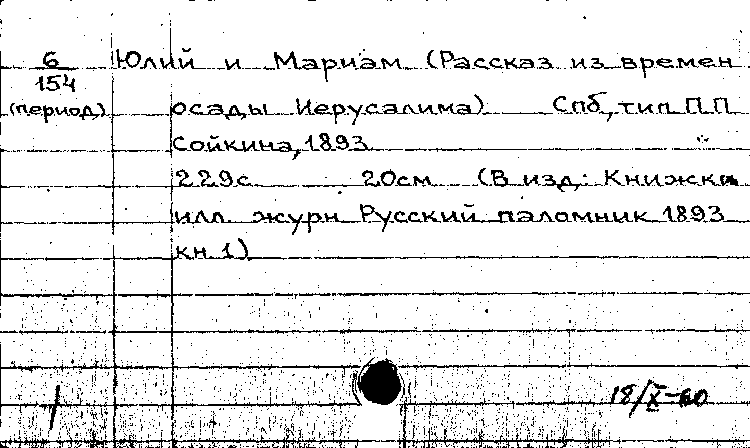 6 Юлий и Мариам (Рассказ из времен
154
(период) осады Иерусалима) Спб, тип П.П
Сойкина, 1893
229с 20см (В изд: Книжки
илл. журн Русский паломник 1893
кн. 1)
18/X-60